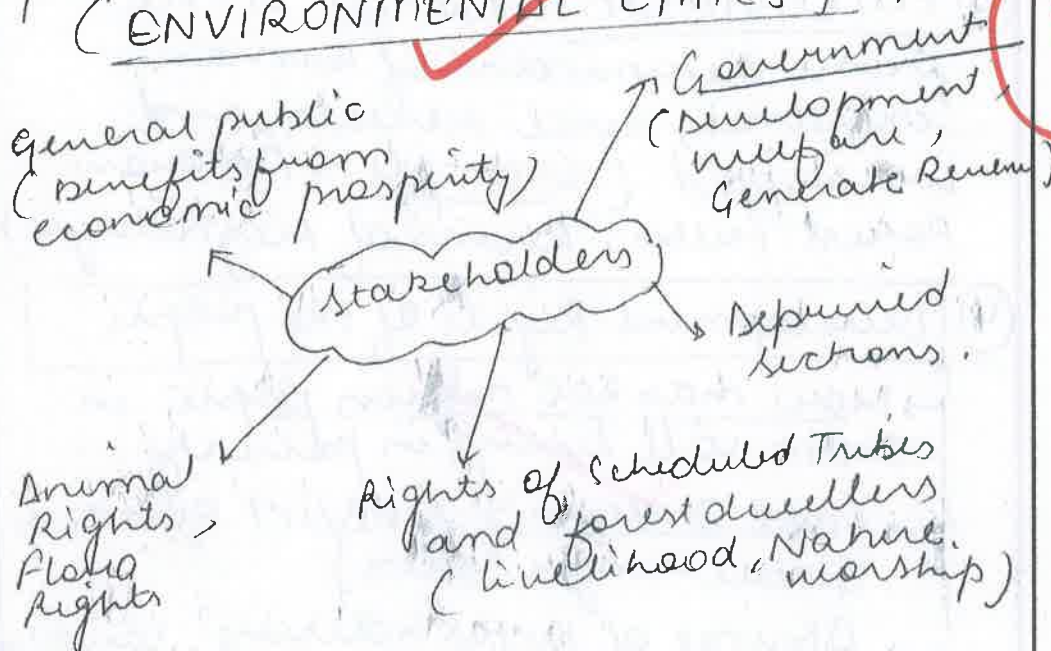 (ENVIRONMENTAL ETHICS)
General public
(Benefits from
economic prosperity)
Government
(Development,
welfare,
Generate Revenue)
Stakeholders
Deprived
sections.
Animal
Rights,
Flora
Rights
Rights of Scheduled Tribes
and forest dwellers
(livelihood, Nature
worship)